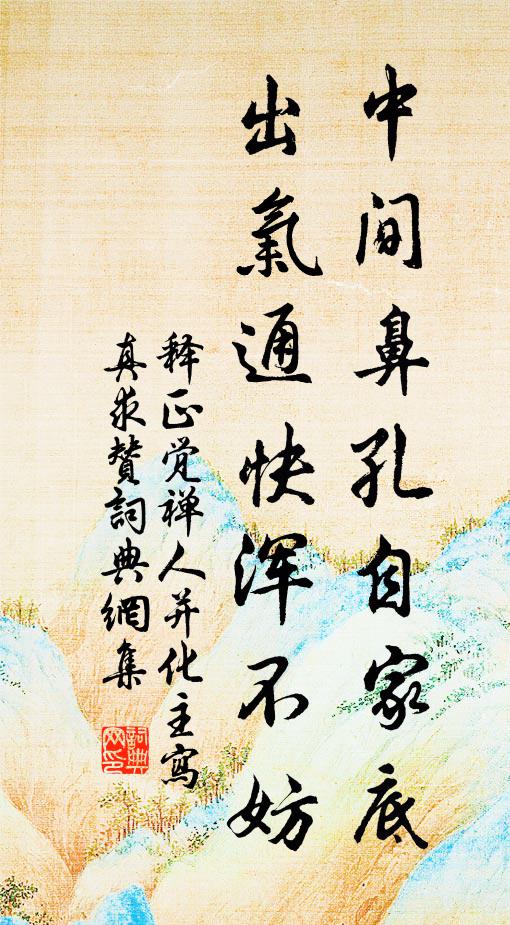 中间鼻孔自家底
出氣通快浑不妨
释正觉禅人并化主寫
真求賛詞典網集
詞典
网印